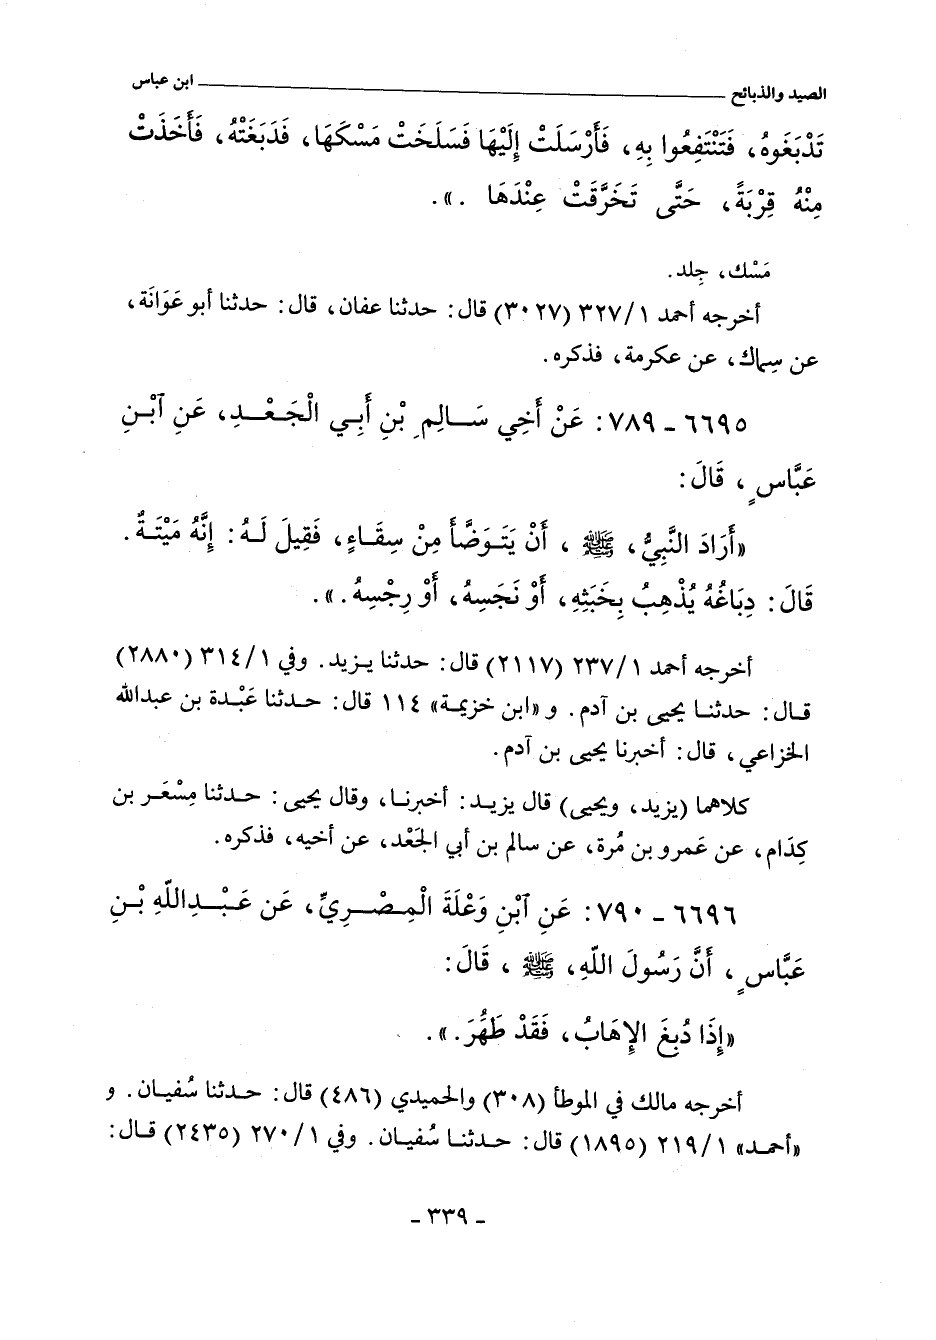 الصيد والذبائح ــــــــــ ابن عباس
تَدْبَغَوهُ، فَتَنْتَفِعُوا بِهِ، فَأَرْسَلَتْ إِلَيْهَا فَسَلَخَتْ مَسْكَهَا، فَدَبَغَتْهُ، فَأَخَذَتْ
مِنْهُ قِرْبَةً، حَتَّى تَخَرَّقَتْ عِنْدَهَا .».
مَسْك، جِلد.
أخرجه أحمد ١/ ٣٢٧ (٣٠٢٧) قال: حدثنا عفان، قال: حدثنا أبو عَوَانَة،
عن سِماك، عن عكرمة، فذكره.
٦٦٩٥ ـ ٧٨٩: عَنْ أَخِي سَالِمِ بْنِ أَبِي الْجَعْدِ، عَنِ ٱبْنِ
عَبَّاسٍ، قَالَ:
«أَرَادَ النَّبِيُّ، ﷺ، أَنْ يَتَوَضَّأَ مِنْ سِقَاءٍ، فَقِيلَ لَهُ: إِنَّهُ مَيْتَةٌ.
قَالَ: دِبَاغُهُ يُذْهِبُ بِخَبَثِهِ، أَوْ نَجَسِهُ، أَوْ رِجْسِهُ.».
أخرجه أحمد ١/ ٢٣٧ (٢١١٧) قال: حدثنا يزيد. وفي ١/ ٣١٤ (٢٨٨٠)
قال: حدثنا يحيى بن آدم. و «ابن خزيمة» ١١٤ قال: حدثنا عَبْدة بن عبدالله
الخزاعي، قال: أخبرنا يحيى بن آدم.
كلاهما (يزيد، ويحيى) قال يزيد: أخبرنا، وقال يحيى: حدثنا مِسْعَر بن
كِدَام، عن عَمرو بن مُرة، عن سالم بن أبي الجَعْد، عن أخيه، فذكره.
٦٦٩٦ ـ ٧٩٠: عَنِ ٱبْنِ وَعْلَةَ الْمِصْرِيِّ، عَن عَبْدِاللّهِ بْنِ
عَبَّاسٍ، أَنَّ رَسُولَ اللّهِ، ﷺ، قَالَ:
«إِذَا دُبِغَ الإِهَابُ، فَقَدْ طَهُرَ.».
أخرجه مالك في الموطأ (٣٠٨) والحميدي (٤٨٦) قال: حدثنا سُفيان. و
«أحمد» ١/ ٢١٩ (١٨٩٥) قال: حدثنا سُفيان. وفي ١/ ٢٧٠ (٢٤٣٥) قال:
ـ ٣٣٩ ـ